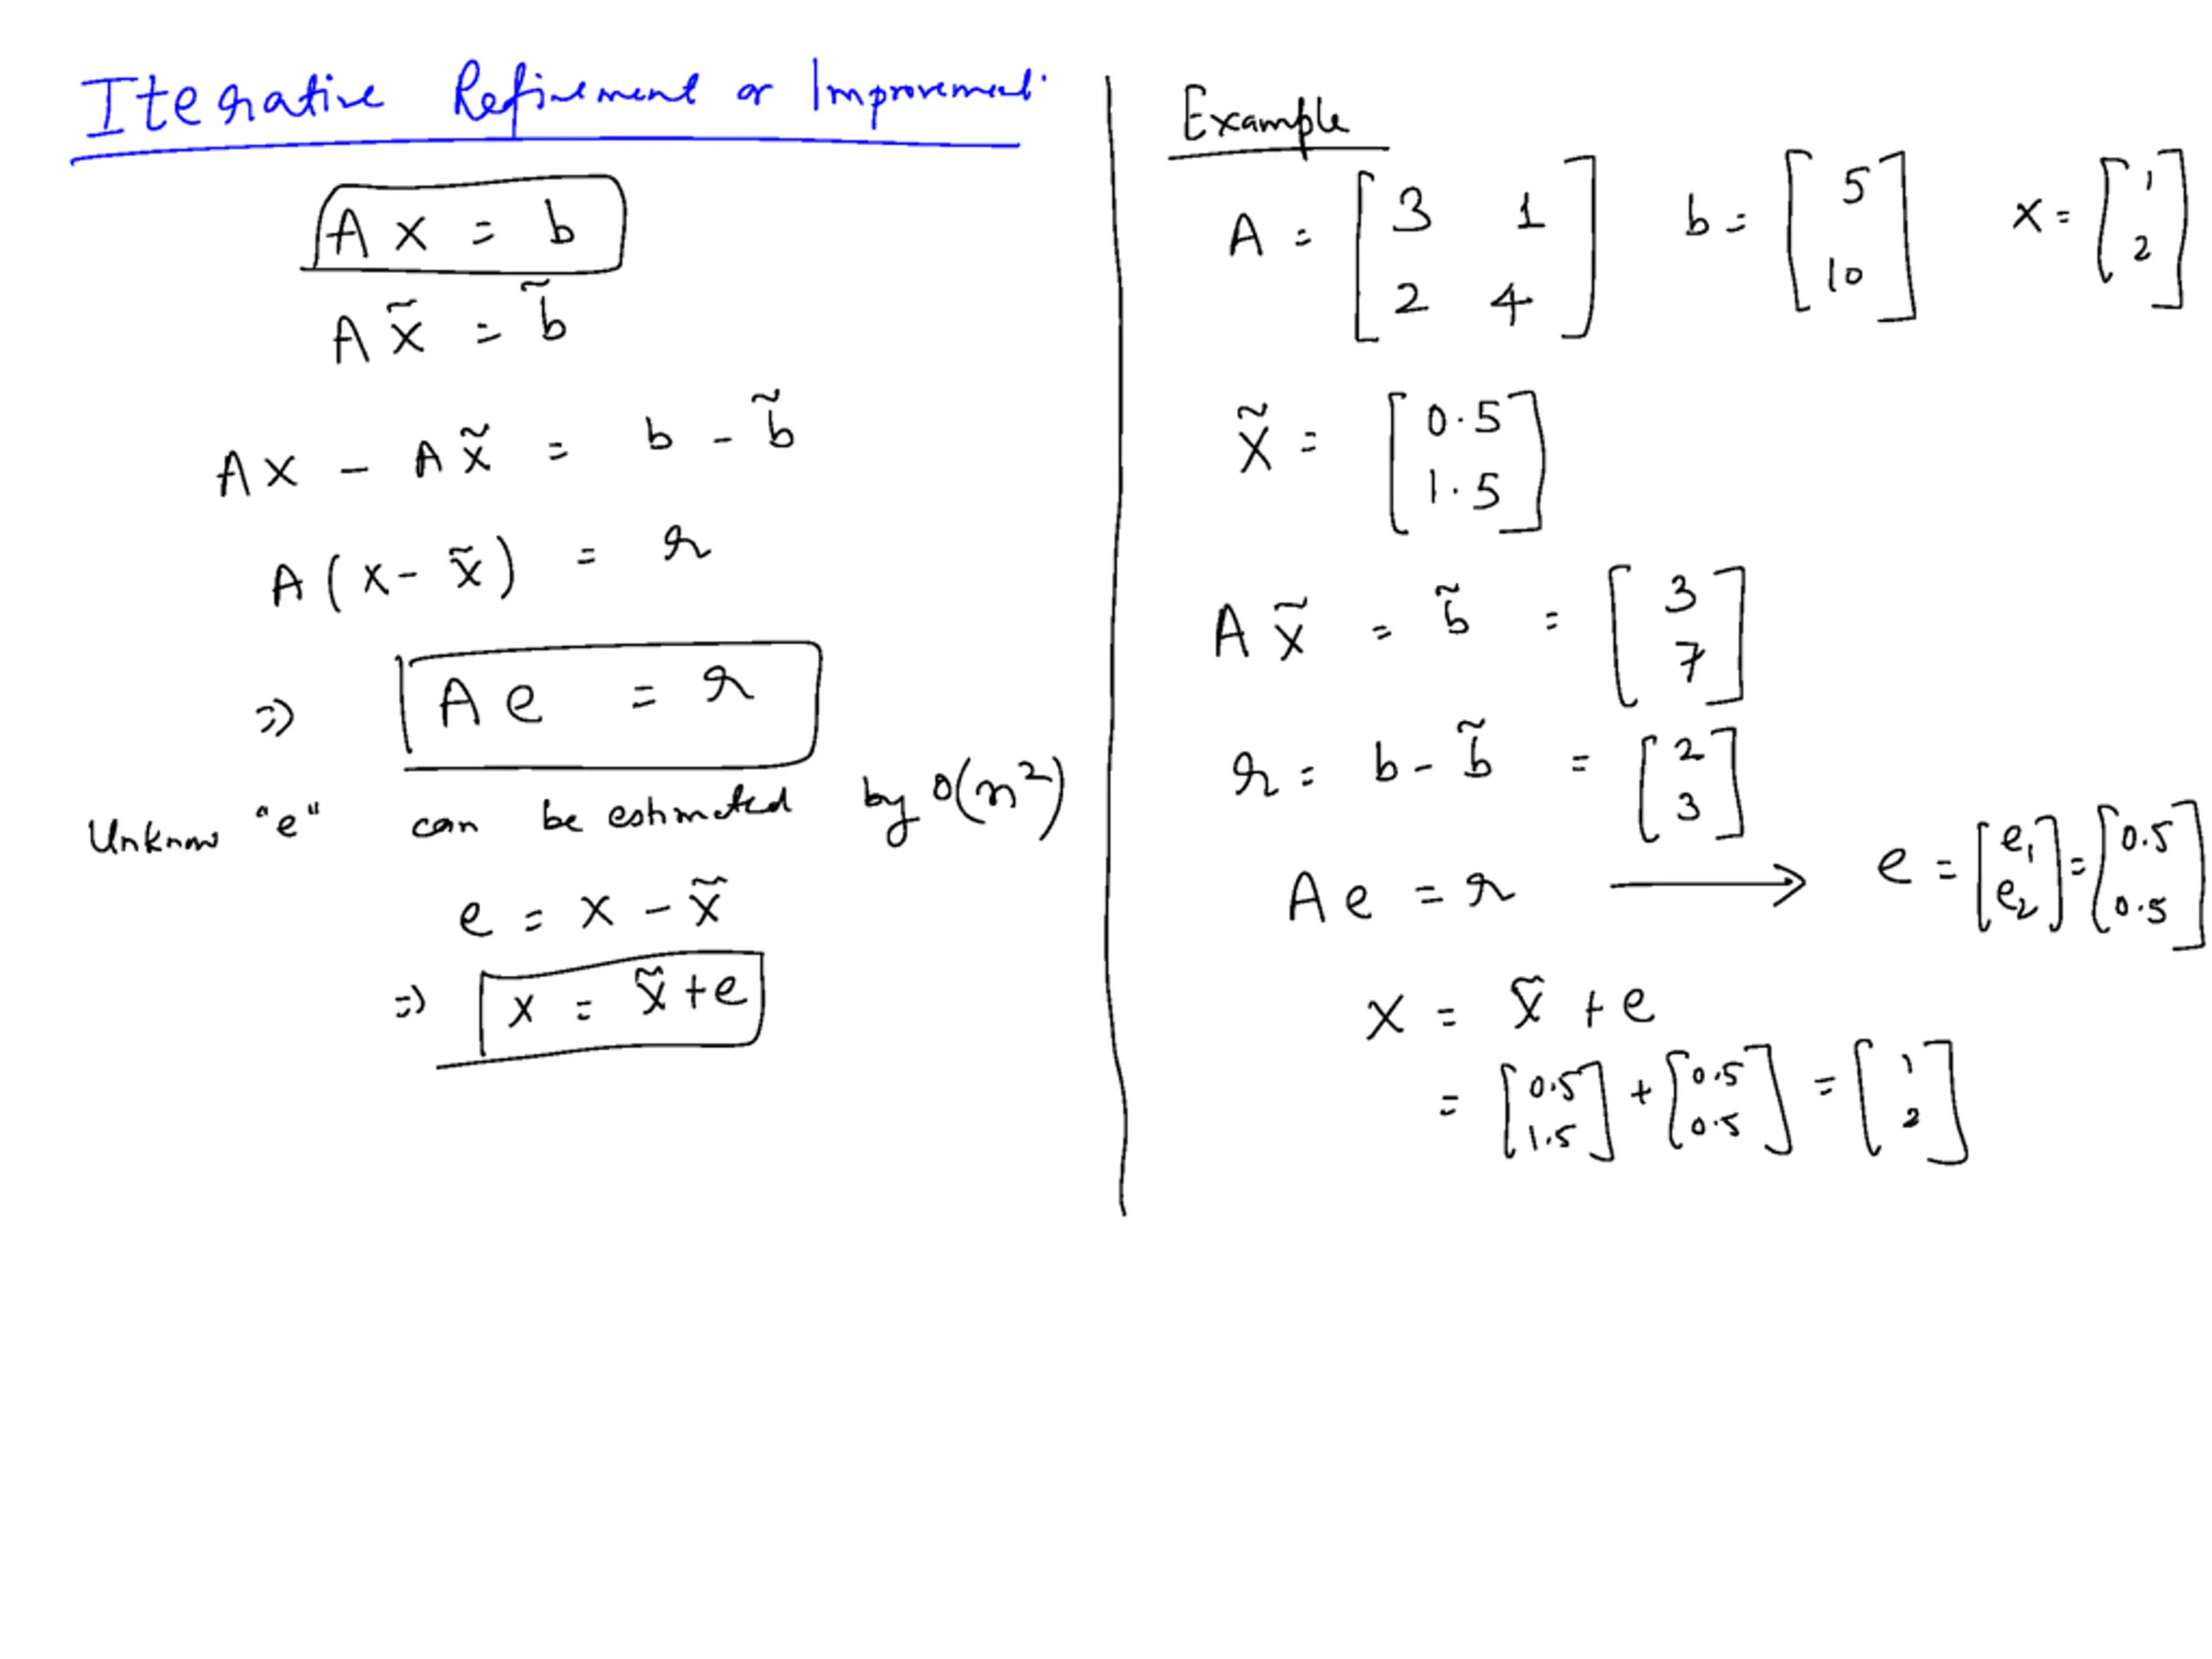 Iterative Refinement or Improvement.
A x = b
A x̃ = b̃
A x - A x̃ = b - b̃
A ( x - x̃ ) = r
⇒ A e = r
Unknown "e" can be estimated by O(n²)
e = x - x̃
⇒ x = x̃ + e
Example
A = [ 3 1 ; 2 4 ] b = [ 5 ; 10 ] x = [ 1 ; 2 ]
x̃ = [ 0.5 ; 1.5 ]
A x̃ = b̃ = [ 3 ; 7 ]
r = b - b̃ = [ 2 ; 3 ]
A e = r → e = [ e₁ ; e₂ ] = [ 0.5 ; 0.5 ]
x = x̃ + e
= [ 0.5 ; 1.5 ] + [ 0.5 ; 0.5 ] = [ 1 ; 2 ]